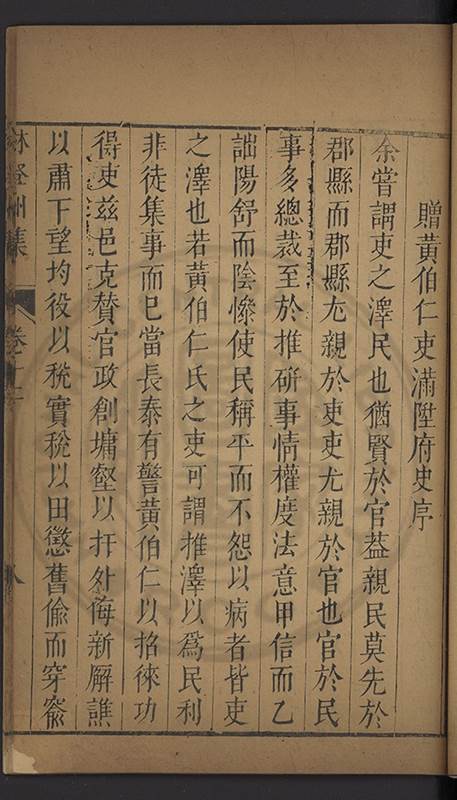 贈黃伯仁吏滿陞府史序
余嘗謂吏之澤民也猶賢於官葢親民莫先於
郡縣而郡縣尤親於吏吏尤親於官也官於民
事多總裁至於推硏事情權度法意甲信而乙
詘陽舒而陰慘使民稱平而不怨以病者皆吏
之澤也若黃伯仁氏之吏可謂推澤以爲民利
非徒集事而已當長泰有警黃伯仁以招徠功
得吏兹邑克賛官政創墉壑以扞外侮新廨譙
以肅下望均役以稅實稅以田懲舊偷而穿窬
林登州集
卷十二
八